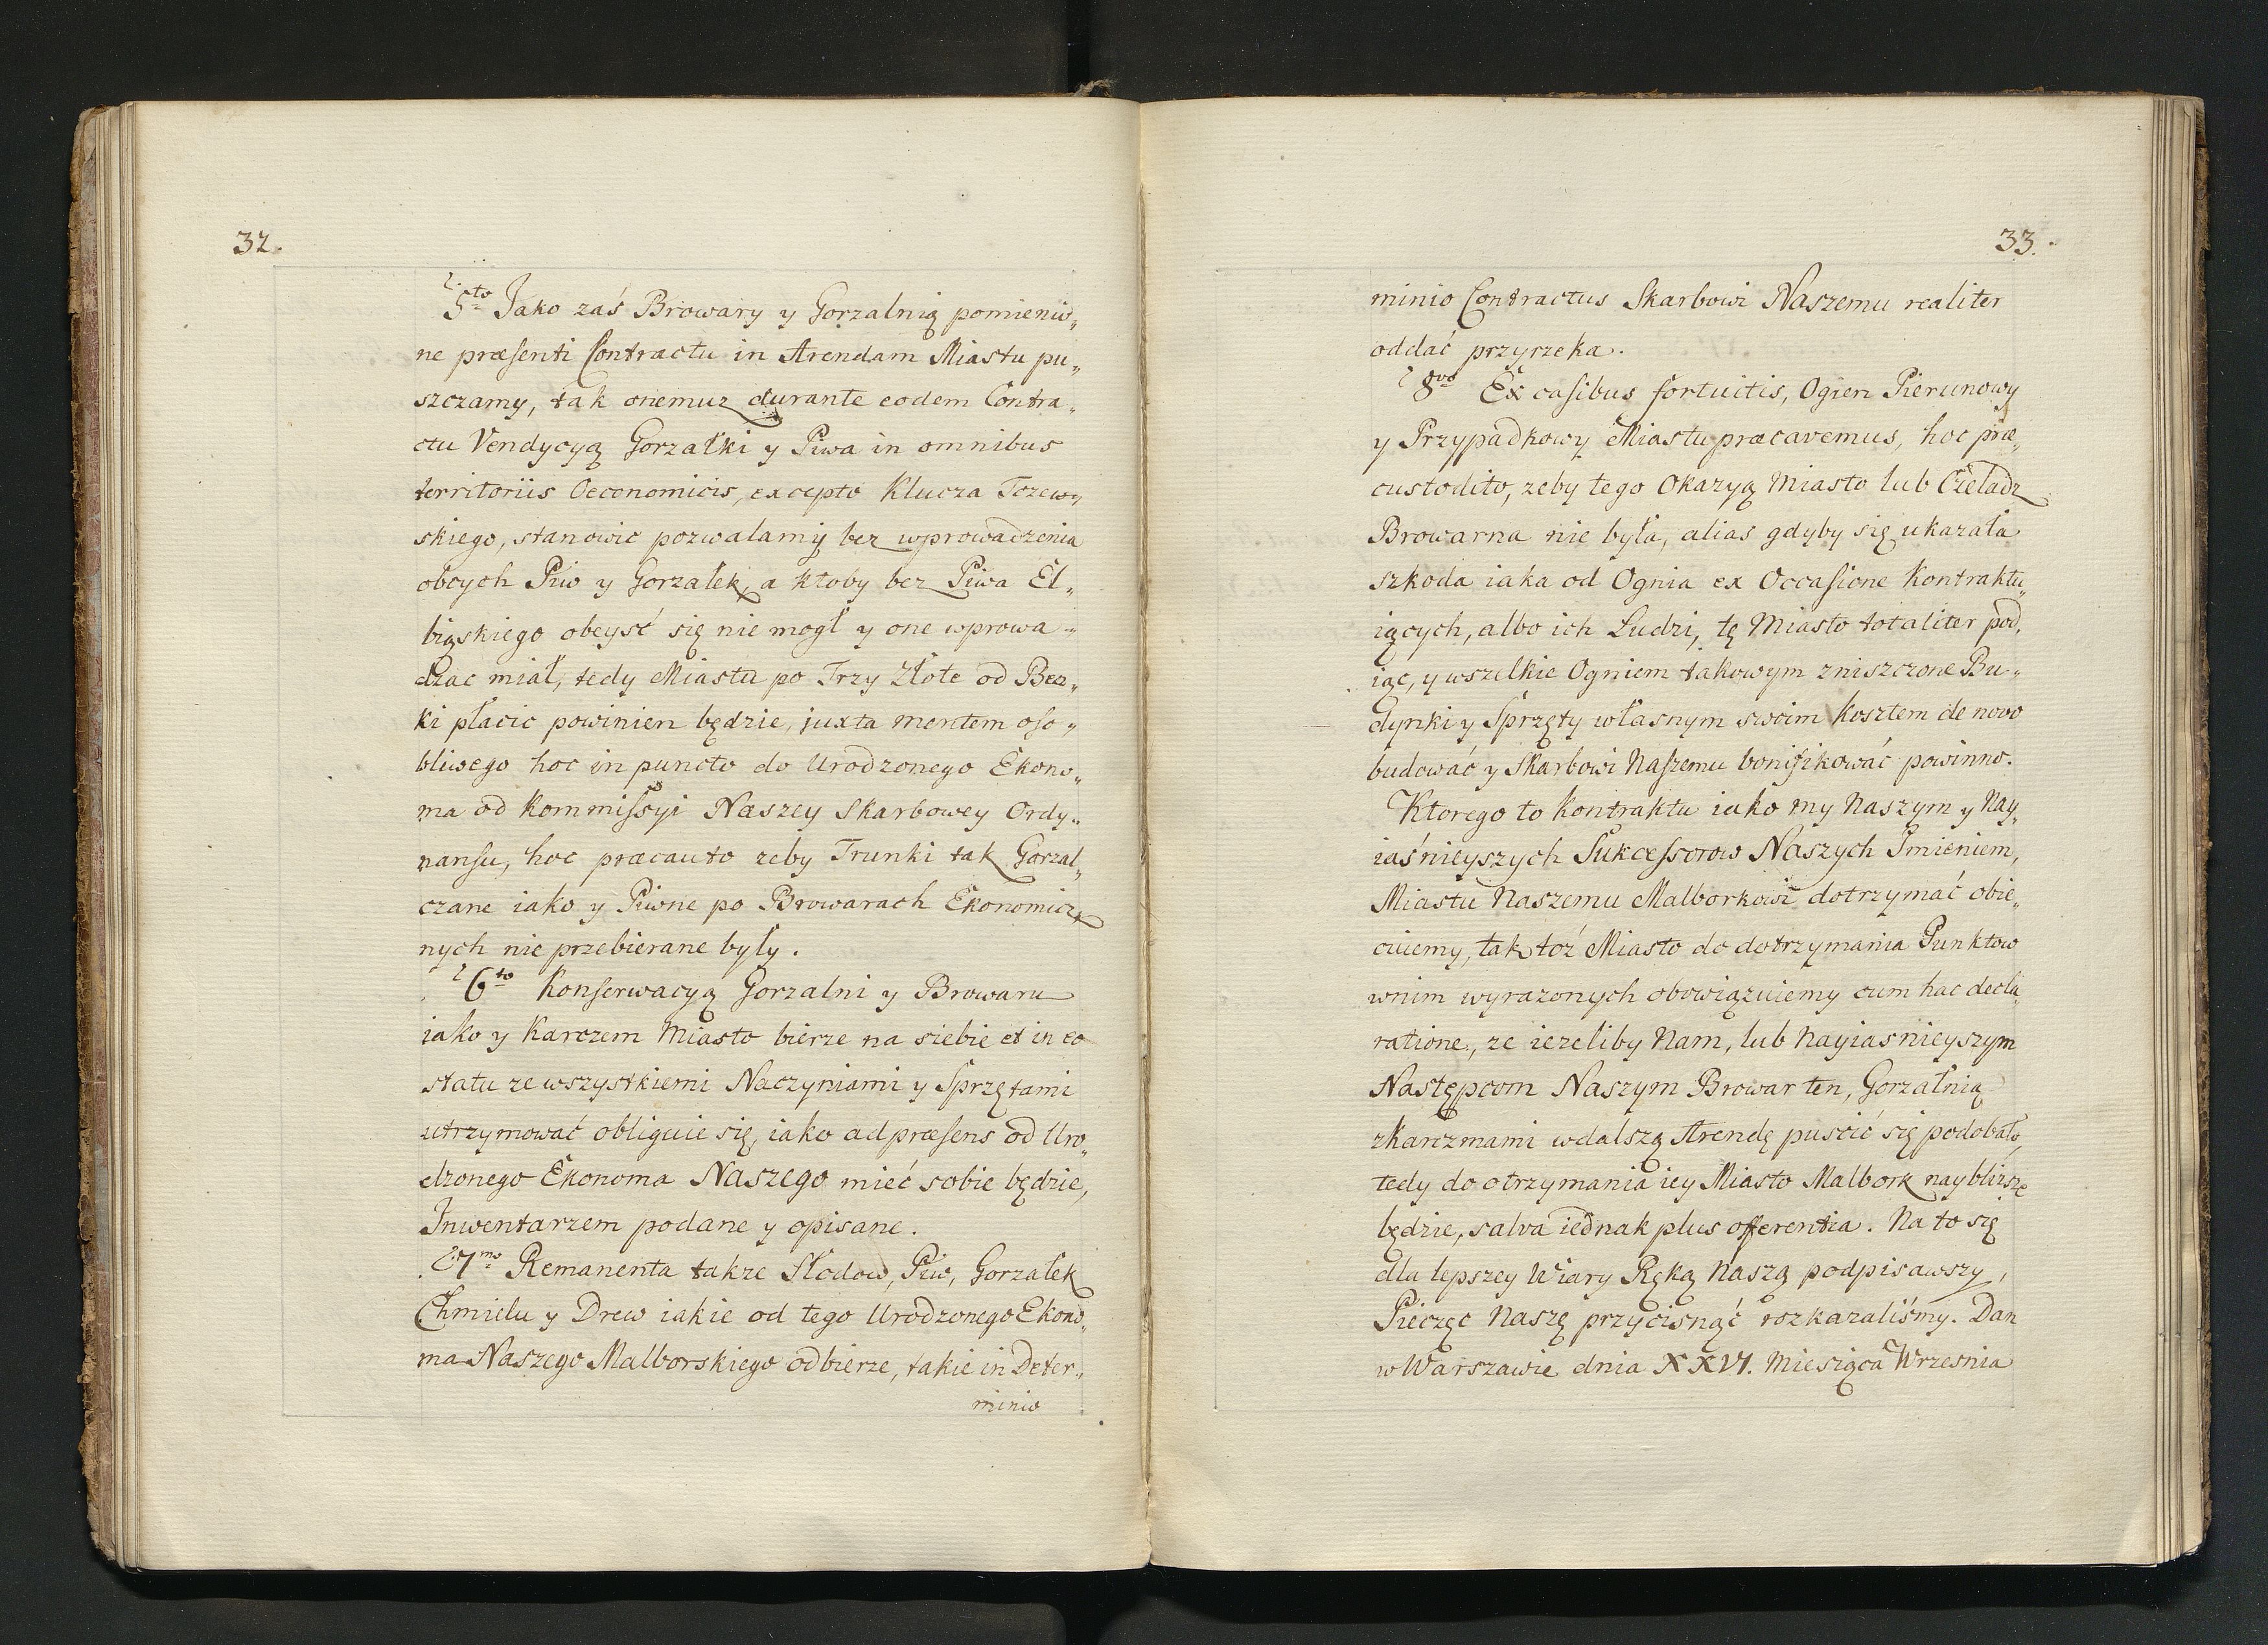 32.
5to Jako zaś Browary y Gorzalnią pomienio„
ne præsenti Contractu in Arendam Miastu pu„
szczamy, tak onemuz durante eodem Contra„
ctu Vendycyą Gorzałki y Piwa in omnibus
territoriis Oeconomicis, excepto Klucza Tczew„
skiego, stanowic pozwalamy bez wprowadzenia
obcych Piw y Gorzałek, a ktoby bez Piwa El„
biąskiego obeyść się nie mogł y one wprowa„
dzac miał, tedy Miastu po Trzy Złote od Becz„
ki płacic powinien będzie, juxta mentem oso„
bliwego hoc in puncto do Urodzonego Ekono„
ma od Kommissyi Naszey Skarbowey Ordy„
nansu, hoc præcauto zeby Trunki tak Gorzał„
czane iako y Piwne po Browarach Ekonomicz„
nych nie przebierane były.
6to Konserwacyą Gorzalni y Browaru
iako y Karczem Miasto bierze na siebie et in eo
statu ze wszystkiemi Naczyniami y Sprzętami
utrzymować obliguie się, iako ad præsens od Uro„
dzonego Ekonoma Naszego mieć sobie będzie,
Inwentarzem podane y opisane.
7mo Remanenta takze Słodow, Piw, Gorzałek
Chmielu y Drew iakie od tego Urodzonego Ekono„
ma Naszego Malborskiego odbierze, takie in Deter„
minio
33.
minio Contractus Skarbowi Naszemu realiter
oddać przyrzeka.
8vo Ex casibus fortuitis, Ogien Pierunowy
y Przypadkowy Miastu præcavemus, hoc præ„
custodito, zeby tego Okazyą Miasto lub Czeladz
Browarna nie była, alias gdyby się ukazała
szkoda iaka od Ognia ex Occasione Kontraktu„
iących, albo ich Ludzi, tę Miasto totaliter pod„
iąc, y wszelkie Ogniem takowym zniszczone Bu„
dynki y Sprzęty własnym swoim Kosztem de novo
budować y Skarbowi Naszemu bonifikować powinno.
Ktorego to Kontraktu iako my Naszym y Nay„
iaśnieyszych Sukcessorow Naszych Imieniem,
Miastu Naszemu Malborkowi dotrzymać obie„
cuiemy, tak toż Miasto do dotrzymania Punktow
wnim wyrazonych obowiązuiemy cum hac decla„
ratione, ze iezeliby Nam, lub Nayiasnieyszym
Następcom Naszym Browar ten, Gorzałnią
zkarczmami wdalszą Arendę puscić się podobało,
tedy do otrzymania iey Miasto Malbork naybliższe
będzie, salva iednak plus offerentia. Na to się
dla lepszey Wiary Ręką Naszą podpisawszy,
Pieczęc Naszę przycisnąć rozkazaliśmy. Dan
w Warszawie dnia XXVI. Miesiąca Wrzesnia